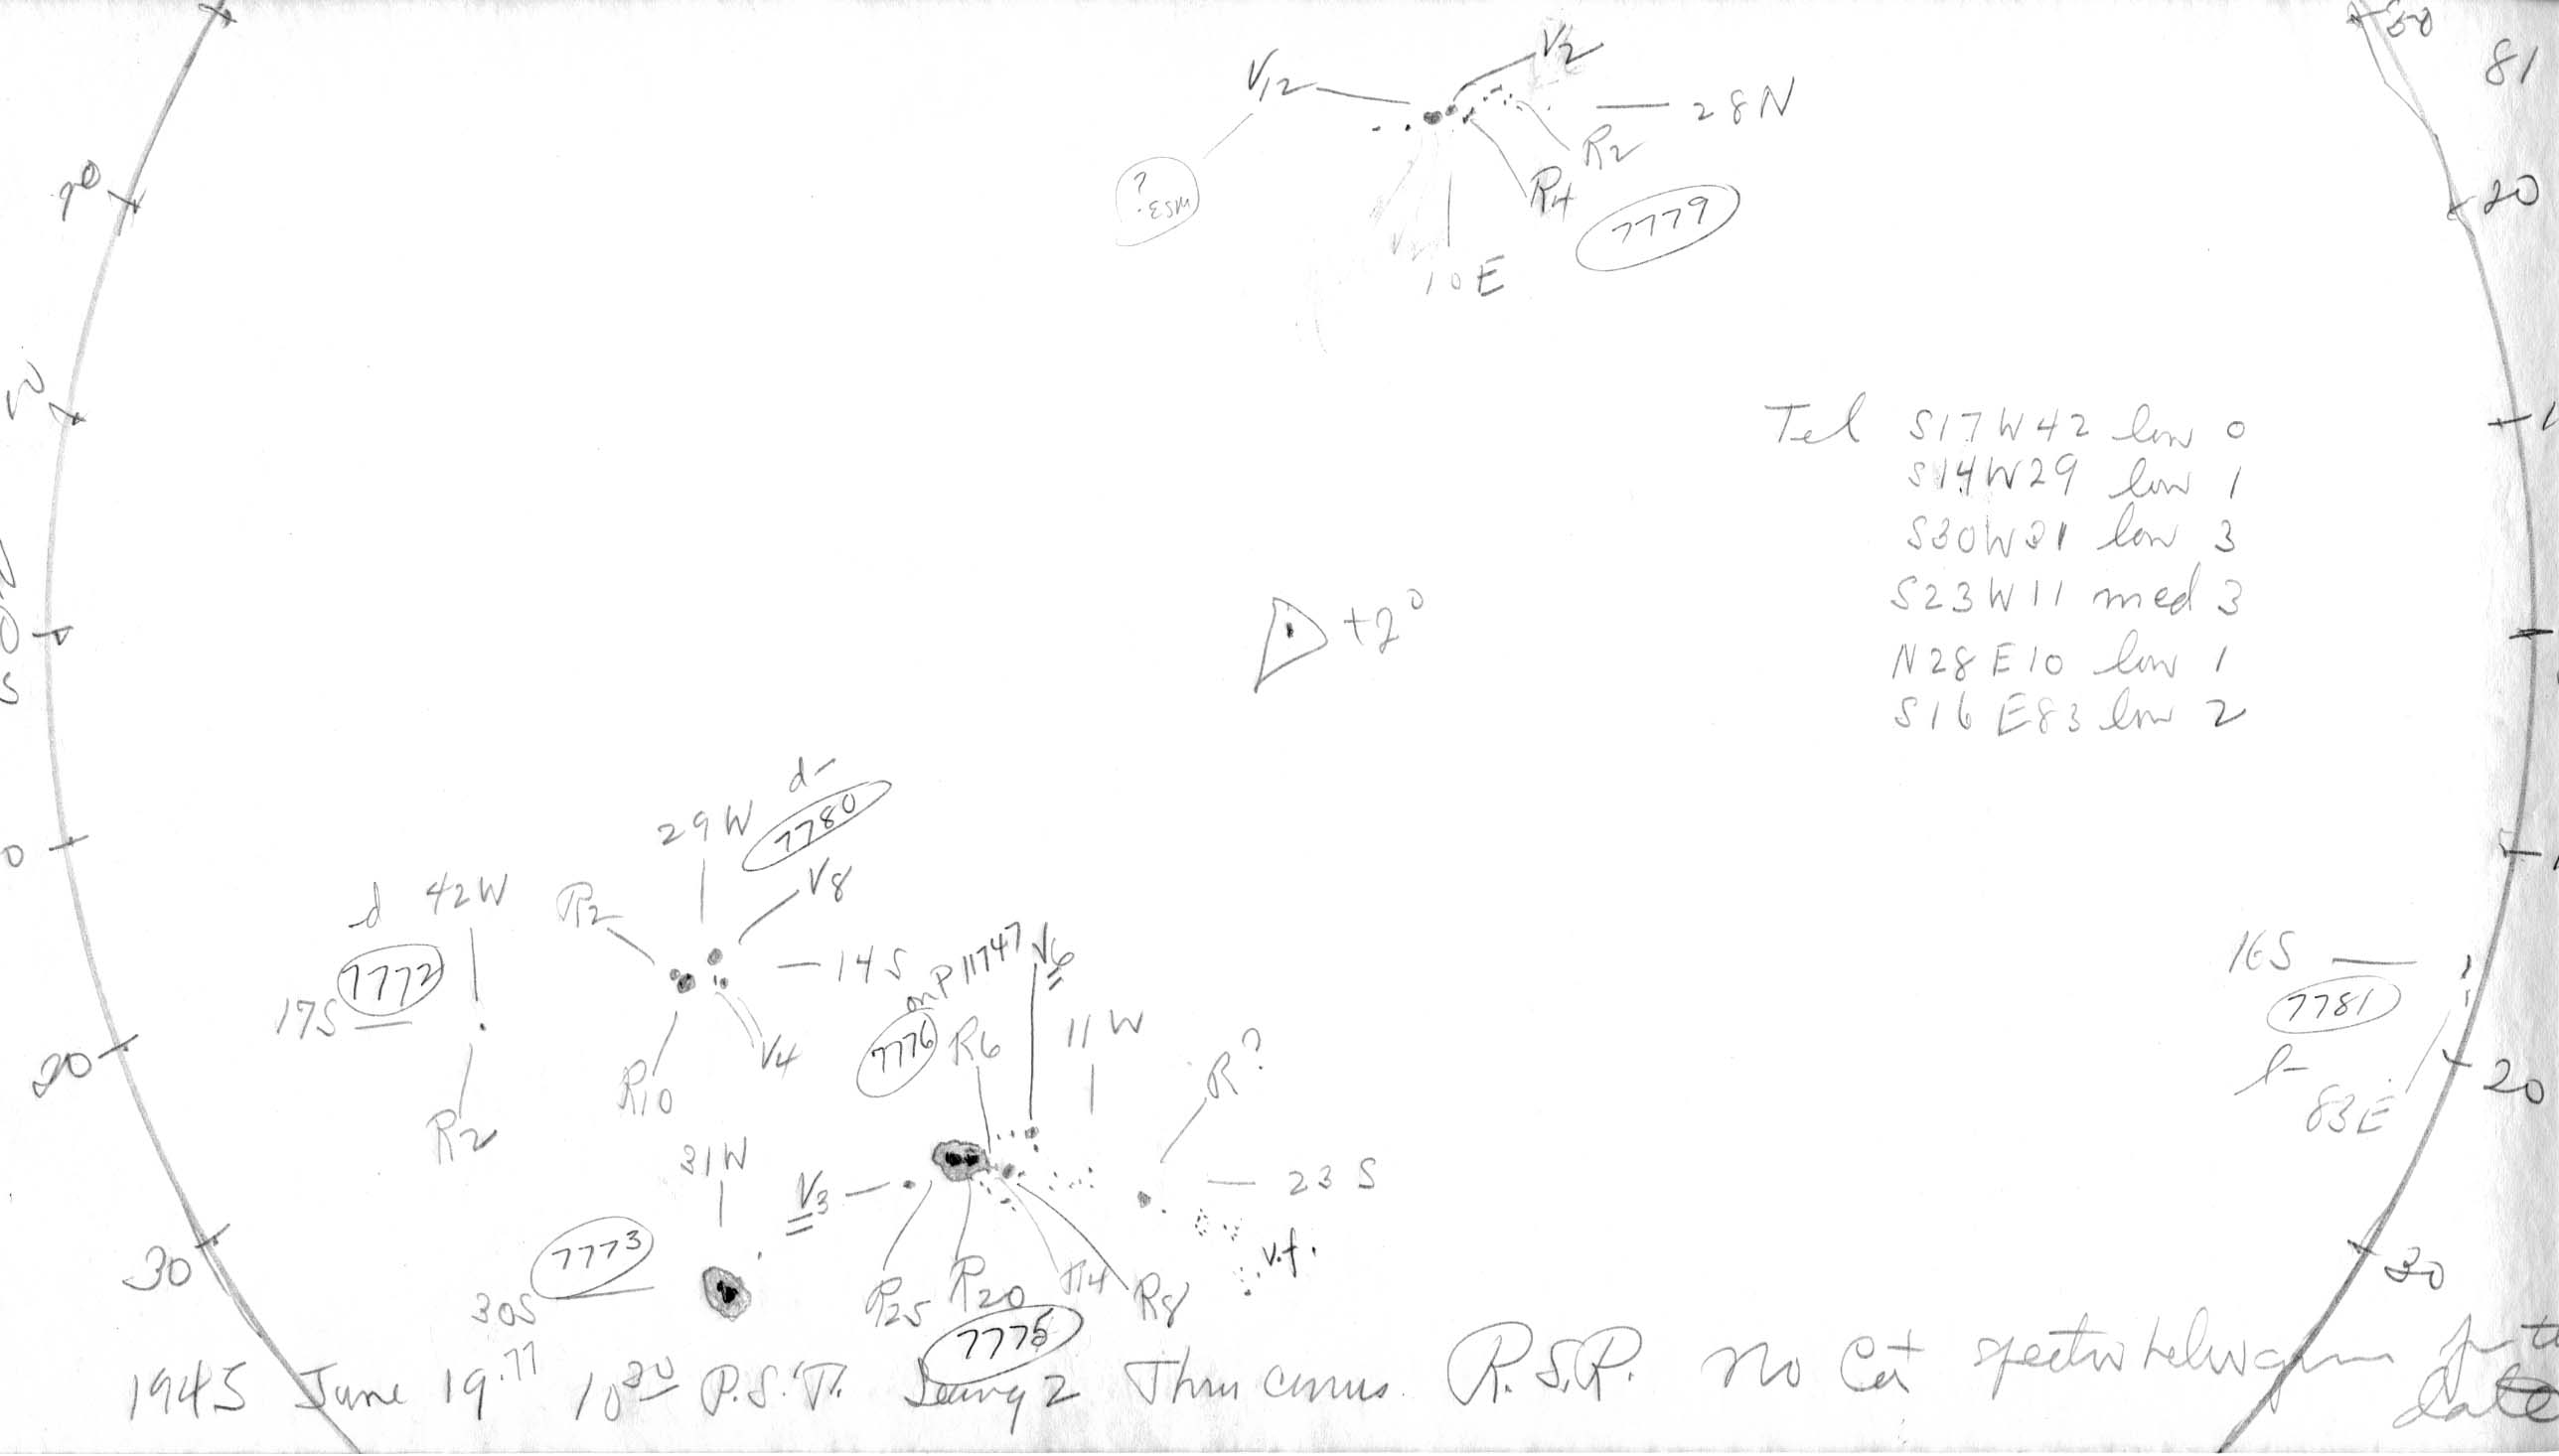 50
81
V12
V2
28N
R2
R4
20
20
?
ESM
7779
10E
Tel S17W42 low 0
S14W29 low 1
S30W31 low 3
S23W11 med 3
N28E10 low 1
S16E83 low 2
+2°
d-
29W
7780
0
V8
d
42W
R2
14S
on P 11747
V6
16S
7772
17S
7781
7776
R6
11W
V4
R?
20
20
l-
R10
83E
R2
31W
V3
23S
7773
v.f.
30
30
30S
R25
R20
R4
R8
7775
1945 June 19.77 10 30 P.S.T. Seeing 2 Thru cirrus. R.S.R. No Ca+ spectroheliogram for this date